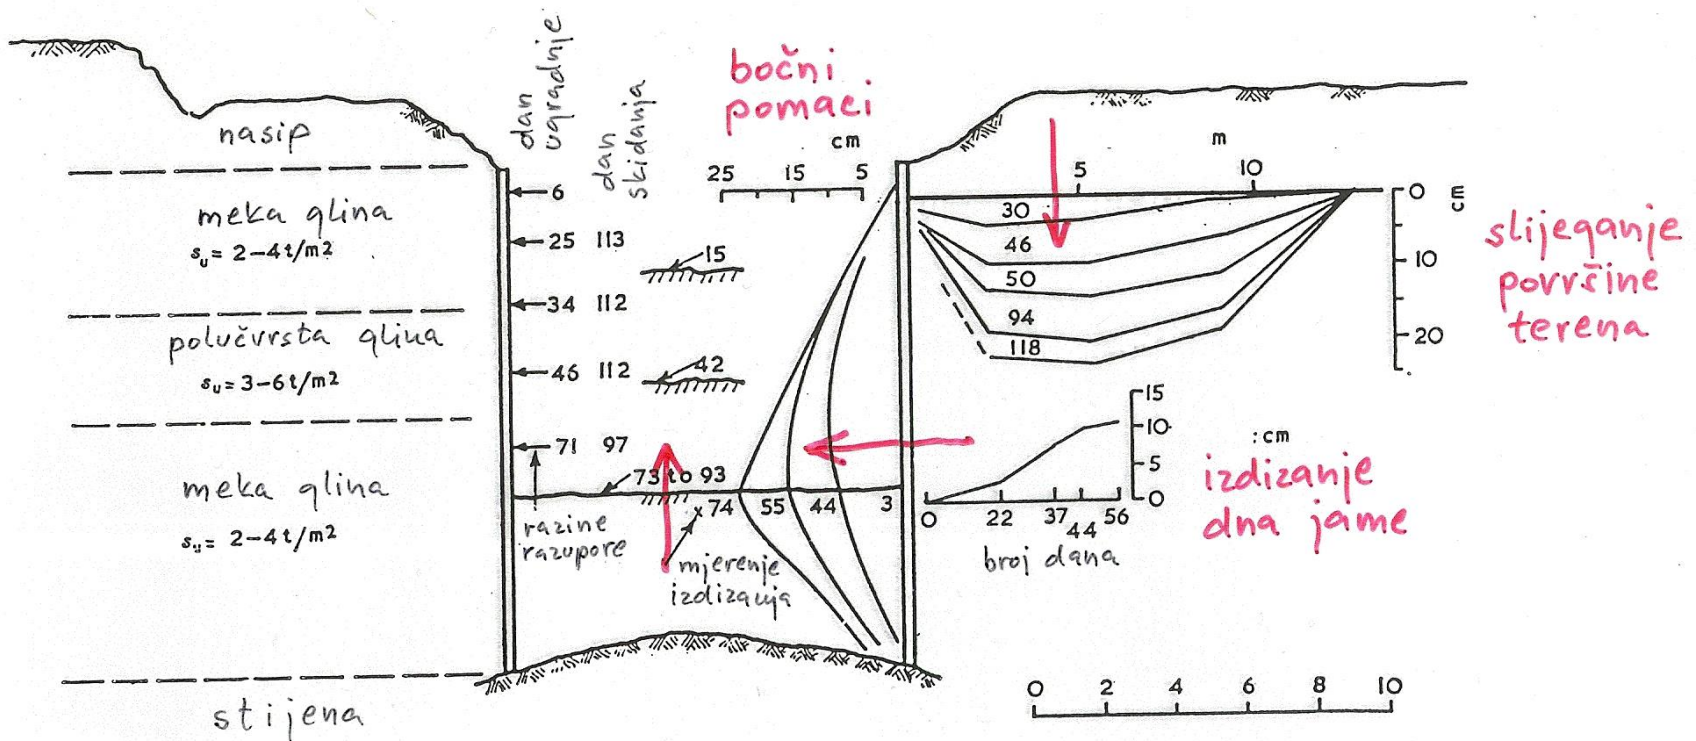 nasip
meka glina
su = 2-4 t/m2
polučvrsta glina
su = 3-6 t/m2
meka glina
su = 2-4 t/m2
stijena
dan
ugradnje
dan
skidanja
6
25 113
34 112
46 112
71 97
15
42
73 to 93
x 74 55 44 3
razine
razupore
mjerenje
izdizanja
bočni
pomaci
cm
25 15 5
m
5 10
30
46
50
94
118
0
10
20
cm
slijeganje
površine
terena
15
10
5
0
:cm
0 22 37 44 56
broj dana
izdizanje
dna jame
0 2 4 6 8 10